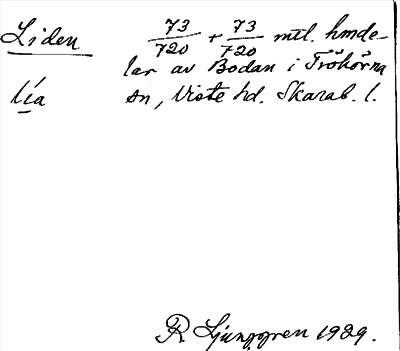 Liden 73/720 + 73/720 mtl. hmde-
lar av Bodan i Fröhärna
lía sn, Viste hd. Skarab. l.
R. Ljunggren 1929.